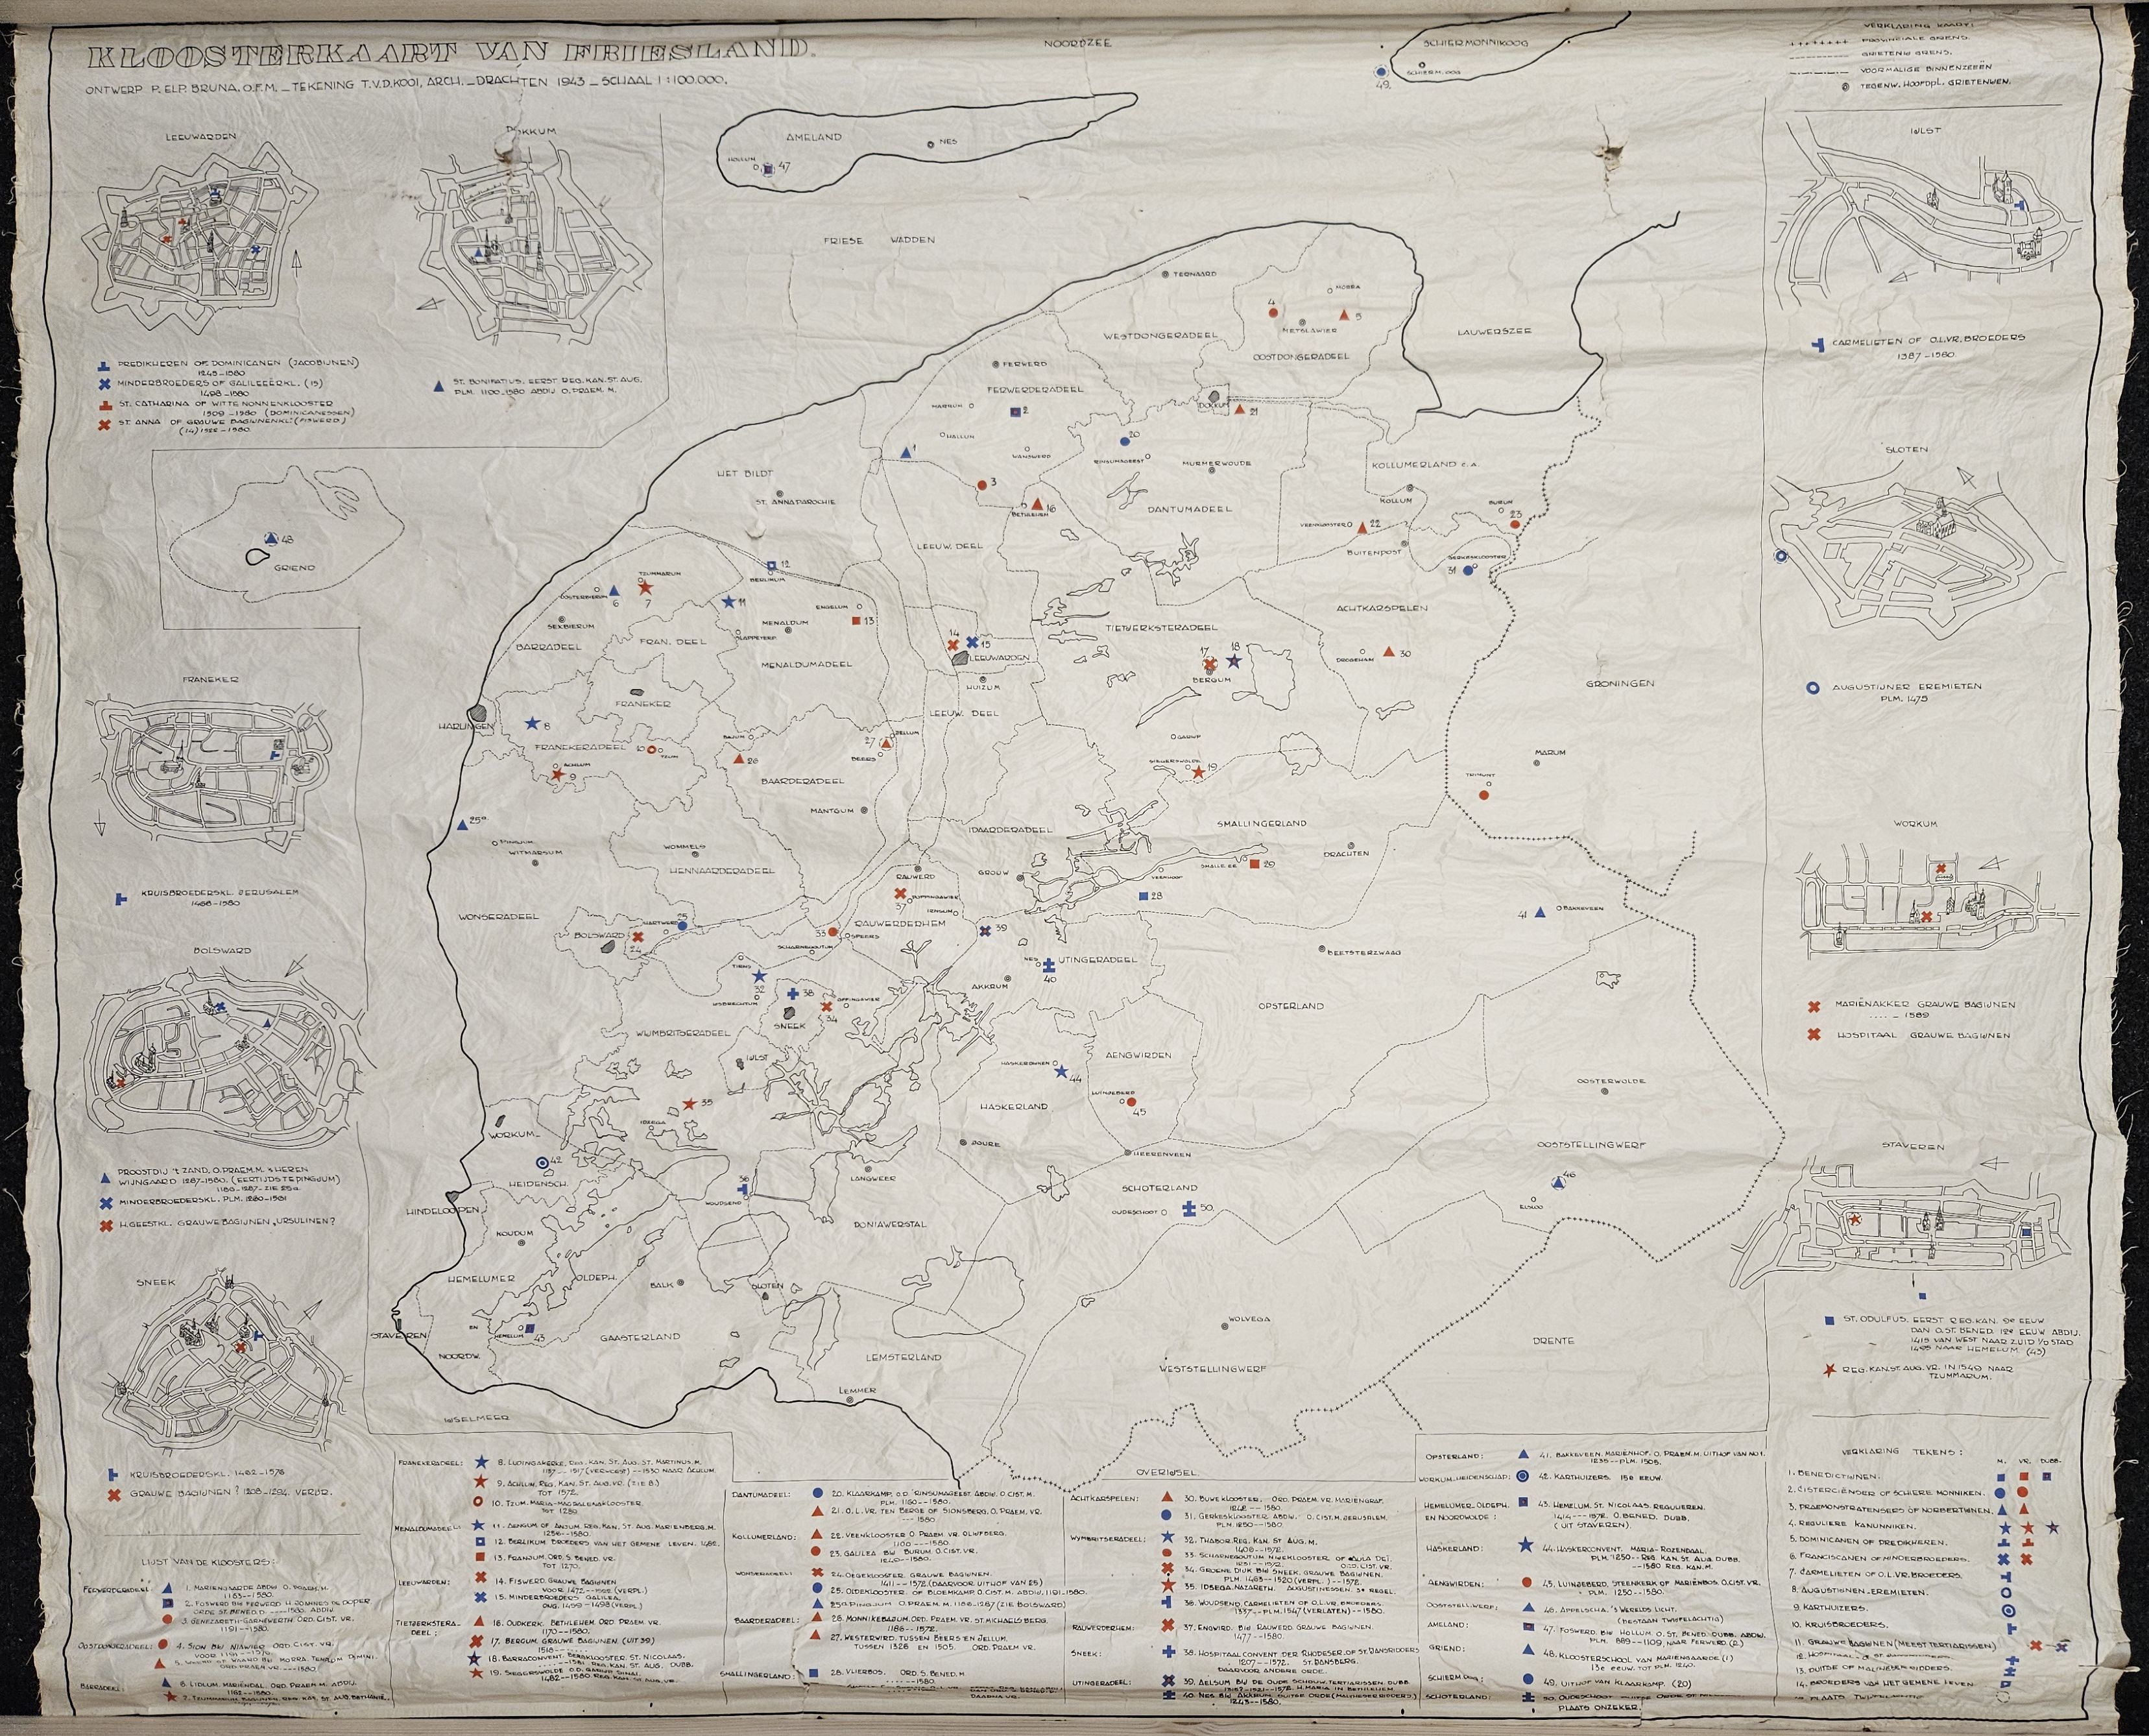 KLOOSTERKAART VAN FRIESLAND.
ONTWERP P. ELP. BRUNA. O.F.M. _ TEKENING T.V.D. KOOI, ARCH. _ DRACHTEN 1943 _ SCHAAL 1:100.000.
NOORDZEE
SCHIERMONNIKOOG
SCHIERM.OOG
49.
VERKLARING KAART:
PROVINCIALE GRENS.
GRIETENIJ GRENS.
VOORMALIGE BINNENZEEËN
TEGENW. HOOFDPL. GRIETENIJEN.
LEEUWARDEN
DOKKUM
AMELAND
NES
HOLLUM
47
IJLST
FRIESE WADDEN
PREDIKHEREN OF DOMINICANEN (JACOBIJNEN)
1245-1580
MINDERBROEDERS OF GALILEEËRKL. (15)
1498-1580
ST. CATHARINA OF WITTE NONNENKLOOSTER
1509-1580 (DOMINICANESSEN)
ST. ANNA OF GRAUWE BAGIJNENKL. (FISWERD)
ST. BONIFATIUS. EERST REG. KAN. ST. AUG.
PLM. 1100-1580 ABDIJ O. PRAEM. M.
CARMELIETEN OF O.L.VR. BROEDERS
1387-1580.
TERNAARD
MORRA
4
5
METSLAWIER
WESTDONGERADEEL
OOSTDONGERADEEL
LAUWERSZEE
FERWERD
FERWERDERADEEL
MARRUM
2
DOKKUM
21
HALLUM
1
WANSWERD
20
RINSUMAGEEST
MURMERWOUDE
KOLLUMERLAND c.a.
KOLLUM
SLOTEN
HET BILDT
ST. ANNAPAROCHIE
3
BETHLEHEM
16
DANTUMADEEL
VEENKLOOSTER
22
BURUM
23
BUITENPOST
GERKESKLOOSTER
31
48
GRIEND
LEEUW. DEEL
12
BERLIKUM
TZUMMARUM
OOSTERBIERUM
6
7
11
SLAPPETERP
ENGELUM
13
MENALDUM
SEXBIERUM
BARRADEEL
FRAN. DEEL
MENALDUMADEEL
14
15
LEEUWARDEN
HUIZUM
TIETJERKSTERADEEL
17
18
BERGUM
ACHTKARSPELEN
DROGEHAM
30
GRONINGEN
AUGUSTIJNER EREMIETEN
PLM. 1475
FRANEKER
FRANEKER
HARLINGEN
8
FRANEKERADEEL
10
TZUM
ACHLUM
9
LEEUW. DEEL
BAIJUM
26
27
JELLUM
BEERS
BAARDERADEEL
MANTGUM
GARIJP
SIEGERSWOLDE
19
MARUM
TRIMUNT
25a
PINGJUM
WITMARSUM
WOMMELS
HENNAARDERADEEL
IDAARDERADEEL
SMALLINGERLAND
DRACHTEN
WORKUM
RAUWERD
GROUW
SMALLE EE
29
28
37
KRUISBROEDERSKL. JERUSALEM
1468-1580
WONSERADEEL
BOLSWARD
24
HARTWERD
25
33
SCHARNEGOUTUM
RAUWERDERHEM
39
NES
UTINGERADEEL
40
AKKRUM
41
BAKKEVEEN
BEETSTERZWAAG
BOLSWARD
TIRNS
32
IJSBRECHTUM
38
OFFINGAWIER
34
SNEEK
WIJMBRITSERADEEL
IJLST
OPSTERLAND
MARIËNAKKER GRAUWE BAGIJNEN
.... _ 1589
HOSPITAAL GRAUWE BAGIJNEN
HASKERDIJKEN
44
AENGWIRDEN
LUINJEBERD
45
HASKERLAND
OOSTERWOLDE
35
IDZEGA
WORKUM
JOURE
HEERENVEEN
OOSTSTELLINGWERF
STAVEREN
42
HEIDENSCH.
36
WOUDSEND
LANGWEER
SCHOTERLAND
OUDESCHOOT
50.
46
ELSLOO
PROOSTDIJ 't ZAND. O. PRAEM. M. 's HEREN
WIJNGAARD 1287-1580. (EERTIJDS TE PINGJUM)
1186-1287- ZIE 25a
MINDERBROEDERSKL. PLM. 1280-1581
H. GEESTKL. GRAUWE BAGIJNEN, URSULINEN?
HINDELOOPEN
KOUDUM
DONIAWERSTAL
SNEEK
HEMELUMER
OLDEPH.
BALK
SLOTEN
STAVEREN
EN
HEMELUM
43
GAASTERLAND
NOORDW.
LEMSTERLAND
LEMMER
WOLVEGA
WESTSTELLINGWERF
DRENTE
ST. ODULFUS. EERST REG. KAN. 9e EEUW
DAN O. ST. BENED. 12e EEUW ABDIJ.
1415 VAN WEST NAAR ZUID V/D STAD
1495 NAAR HEMELUM (43)
REG. KAN. ST. AUG. VR. IN 1549 NAAR
TZUMMARUM.
IJSELMEER
OVERIJSEL.
KRUISBROEDERSKL. 1462-1578
GRAUWE BAGIJNEN?
LIJST VAN DE KLOOSTERS:
FERWERDERADEEL:
1. MARIENGAARDE ABDIJ O. PRAEM. M.
1163-1580.
2. FOSWERD BIJ FERWERD H. JOHANNES DE DOPER
3. GENEZARETH-GARNEWERTH ORD. CIST. VR.
1191-1580.
OOSTDONGERADEEL:
4. SION BIJ NIAWIER ORD. CIST. VR.
BARRADEEL:
6. LIDLUM. MARIËNDAL. ORD. PRAEM. M.
1182-1580.
FRANEKERADEEL:
8. LUDINGAKERKE. REG. KAN. ST. AUG. ST. MARTINUS. M.
9. ACHLUM. REG. KAN. ST. AUG. VR. (ZIE 8.)
TOT 1572.
10. TZUM. MARIA-MAGDALENAKLOOSTER
TOT 1280
MENALDUMADEEL:
11. AENGUM OF ANJUM. REG. KAN. ST. AUG. MARIENBERG. M.
1256-1580.
12. BERLIKUM BROEDERS VAN HET GEMENE LEVEN.
13. FRANJUM. ORD. S. BENED. VR.
TOT 1270.
LEEUWARDEN:
14. FISWERD. GRAUWE BAGIJNEN
15. MINDERBROEDERS GALILEA.
TIETJERKSTERADEEL:
16. OUDKERK. BETHLEHEM ORD. PRAEM. VR.
1170-1580.
17. BERGUM. GRAUWE BAGIJNEN (UIT 39)
18. BARRACONVENT. BERGKLOOSTER. ST. NICOLAAS.
19. SIEGERSWOLDE
DANTUMADEEL:
20. KLAARKAMP. O.D. RINSUMAGEEST. ABDIJ. O. CIST. M.
21. O.L.VR. TEN BERGE OF SIONSBERG. O. PRAEM. VR.
KOLLUMERLAND:
22. VEENKLOOSTER O. PRAEM. VR. OLIJFBERG.
23. GALILEA BIJ BURUM O. CIST. VR.
WONSERADEEL:
24. OEGEKLOOSTER. GRAUWE BAGIJNEN.
1411-1572 (DAARVOOR UITHOF VAN 25)
25. OLDEKLOOSTER. OF BLOEMKAMP. O. CIST. M. ABDIJ. 1191-1580.
25a. PINGJUM O. PRAEM. M. 1186-1287 (ZIE BOLSWARD)
BAARDERADEEL:
26. MONNIKEBAIJUM. ORD. PRAEM. VR. ST. MICHAELSBERG.
1186-1572.
27. WESTERWIRD. TUSSEN BEERS EN JELLUM.
TUSSEN 1328 EN 1505. ORD. PRAEM. VR.
SMALLINGERLAND:
28. VLIERBOS. ORD. S. BENED. M.
ACHTKARSPELEN:
30. BUWEKLOOSTER. ORD. PRAEM. VR. MARIËNGRAF.
31. GERKESKLOOSTER ABDIJ. O. CIST. M. JERUSALEM.
PLM. 1250-1580.
WYMBRITSERADEEL:
32. THABOR. REG. KAN. ST. AUG. M.
1406-1572.
33. SCHARNEGOUTUM NIJEKLOOSTER OF AULA DEÏ.
34. GROENE DIJK BIJ SNEEK. GRAUWE BAGIJNEN.
35. IDSEGA. NAZARETH. AUGUSTINESSEN. 3e REGEL.
36. WOUDSEND. CARMELIETEN OF O.L.VR. BROEDERS.
1337-PLM. 1547 (VERLATEN)--1580.
RAUWERDERHEM:
37. ENGWIRD. BIJ RAUWERD. GRAUWE BAGIJNEN.
1477-1580.
SNEEK:
38. HOSPITAALCONVENT DER RHODESER. OF ST. JANSRIDDERS
1207-1572. ST. JANSBERG.
DAARVOOR ANDERE ORDE.
UTINGERADEEL:
39. AELSUM BIJ DE OUDE SCHOUW. TERTIARISSEN. DUBB.
40. NES. BIJ AKKRUM. DUITSE ORDE (MALTHESER RIDDERS)
1243-1580.
OPSTERLAND:
41. BAKKEVEEN. MARIËNHOF. O. PRAEM. M. UITHOF VAN No 1.
1235-PLM. 1505.
WORKUM-HEIDENSCHAP:
42. KARTHUIZERS. 15e EEUW.
HEMELUMER. OLDEPH.
EN NOORDWOLDE:
43. HEMELUM. ST. NICOLAAS. REGULIEREN.
O. BENED. DUBB.
(UIT STAVEREN)
HASKERLAND:
44. HASKERCONVENT. MARIA-ROZENDAAL.
PLM. 1250-- REG. KAN. ST. AUG. DUBB.
--1580 REG. KAN. M.
AENGWIRDEN:
45. LUINJEBERD. STEENKERK OF MARIËNBOS. O. CIST. VR.
PLM. 1250--1580.
OOSTSTELLWERF:
46. APPELSCHA. 's WERELDS LICHT.
(BESTAAN TWIJFELACHTIG)
AMELAND:
47. FOSWERD BIJ HOLLUM. O. ST. BENED. DUBB. ABDIJ.
PLM. 889-1109, NAAR FERWERD (2)
GRIEND:
48. KLOOSTERSCHOOL VAN MARIËNGAARDE (1)
13e EEUW. TOT PLM. 1240.
SCHIERM.OOG:
49. UITHOF VAN KLAARKAMP. (20)
SCHOTERLAND:
50. OUDESCHOOT
PLAATS ONZEKER.
VERKLARING TEKENS:
M. VR. DUBB.
1. BENEDICTIJNEN.
2. CISTERCIËNSER OF SCHIERE MONNIKEN.
3. PRAEMONSTRATENSERS OF NORBERTIJNEN.
4. REGULIERE KANUNNIKEN.
5. DOMINICANEN OF PREDIKHEREN.
6. FRANCISCANEN OF MINDERBROEDERS.
7. CARMELIETEN OF O.L.VR. BROEDERS.
8. AUGUSTIJNEN-EREMIETEN.
9. KARTHUIZERS.
10. KRUISBROEDERS.
11. GRAUWE BAGIJNEN (MEEST TERTIARISSEN)
13. DUITSE OF MALTHESER RIDDERS.
14. BROEDERS VAN HET GEMENE LEVEN